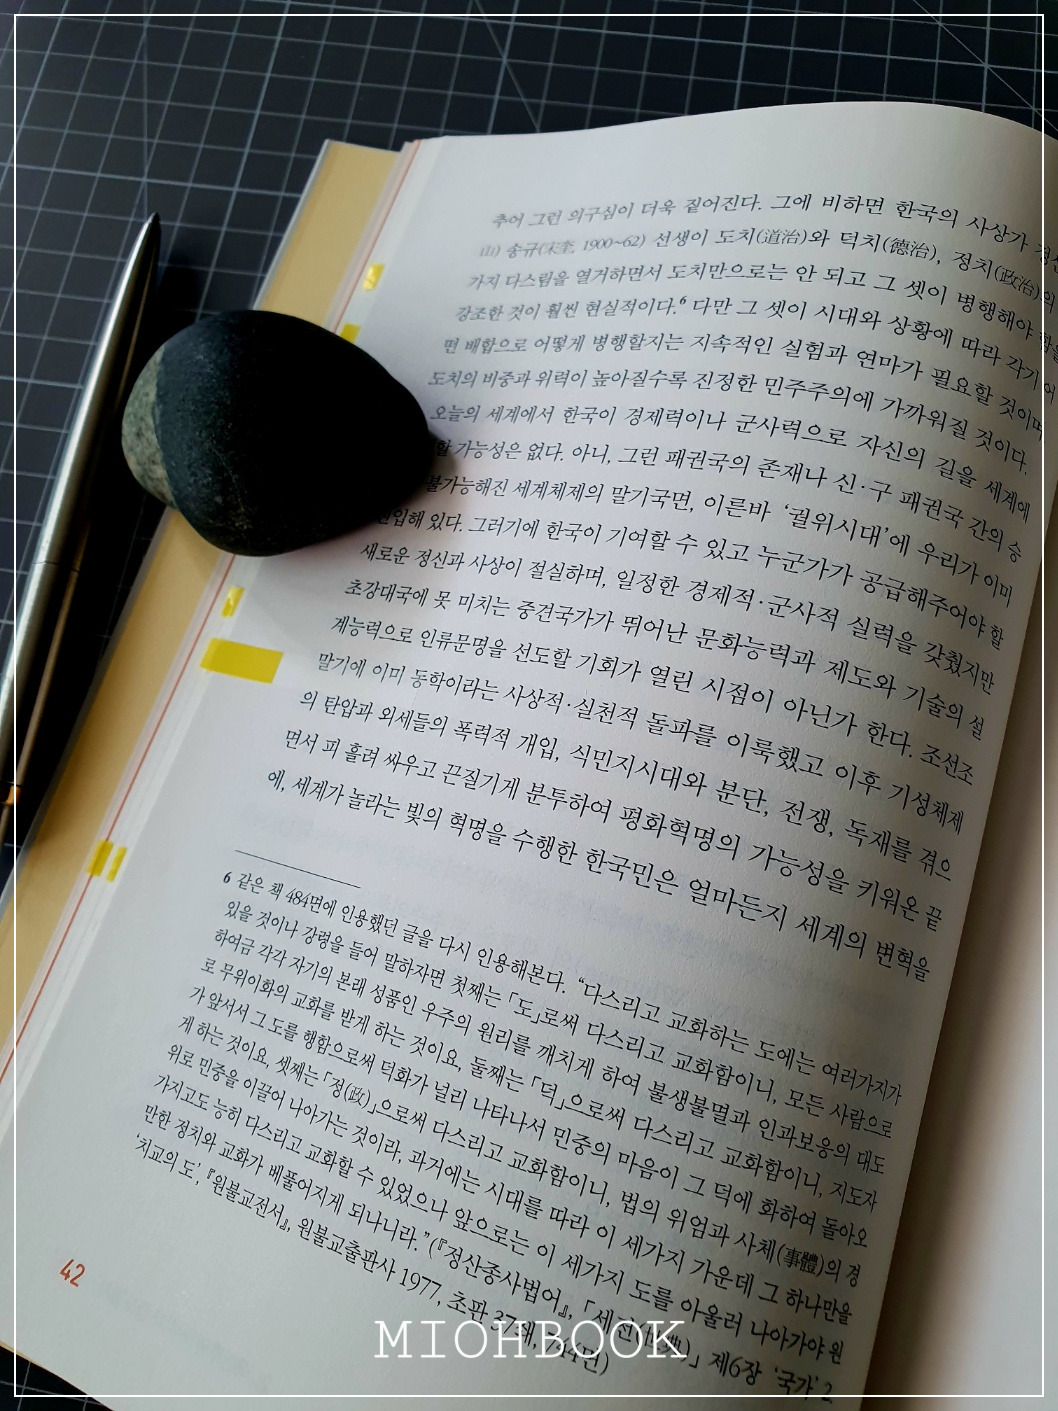 추어 그런 의구심이 더욱 짙어진다. 그에 비하면 한국의 사상가 정산
山) 송규(宋奎 1900~62) 선생이 도치(道治)와 덕치(德治), 정치(政治)의
가지 다스림을 열거하면서 도치만으로는 안 되고 그 셋이 병행해야 함을
강조한 것이 훨씬 현실적이다.6 다만 그 셋이 시대와 상황에 따라 각기 어
떤 배합으로 어떻게 병행할지는 지속적인 실험과 연마가 필요할 것이며
도치의 비중과 위력이 높아질수록 진정한 민주주의에 가까워질 것이다.
오늘의 세계에서 한국이 경제력이나 군사력으로 자신의 길을 세계에
할 가능성은 없다. 아니, 그런 패권국의 존재나 신·구 패권국 간의 승
불가능해진 세계체제의 말기국면, 이른바 ‘궐위시대’에 우리가 이미
진입해 있다. 그러기에 한국이 기여할 수 있고 누군가가 공급해주어야 할
새로운 정신과 사상이 절실하며, 일정한 경제적·군사적 실력을 갖췄지만
초강대국에 못 미치는 중견국가가 뛰어난 문화능력과 제도와 기술의 설
계능력으로 인류문명을 선도할 기회가 열린 시점이 아닌가 한다. 조선조
말기에 이미 동학이라는 사상적·실천적 돌파를 이룩했고 이후 기성체제
의 탄압과 외세들의 폭력적 개입, 식민지시대와 분단, 전쟁, 독재를 겪으
면서 피 흘려 싸우고 끈질기게 분투하여 평화혁명의 가능성을 키워온 끝
에, 세계가 놀라는 빛의 혁명을 수행한 한국민은 얼마든지 세계의 변혁을
6 같은 책 484면에 인용했던 글을 다시 인용해본다. “다스리고 교화하는 도에는 여러가지가
있을 것이나 강령을 들어 말하자면 첫째는 「도」로써 다스리고 교화함이니, 모든 사람으로
하여금 각각 자기의 본래 성품인 우주의 원리를 깨치게 하여 불생불멸과 인과보응의 대도
로 무위이화의 교화를 받게 하는 것이요, 둘째는 「덕」으로써 다스리고 교화함이니, 지도자
가 앞서서 그 도를 행함으로써 덕화가 널리 나타나서 민중의 마음이 그 덕에 화하여 돌아오
게 하는 것이요, 셋째는 「정(政)」으로써 다스리고 교화함이니, 법의 위엄과 사체(事體)의 경
위로 민중을 이끌어 나아가는 것이라, 과거에는 시대를 따라 이 세가지 가운데 그 하나만을
가지고도 능히 다스리고 교화할 수 있었으나 앞으로는 이 세가지 도를 아울러 나아가야 원
만한 정치와 교화가 베풀어지게 되나니라.”(『정산종사법어』, 「세전(世典)」 제6장 ‘국가’ 2.
‘치교의 도’, 『원불교전서』, 원불교출판사 1977, 초판 37쇄, 744면)
42
MIOHBOOK